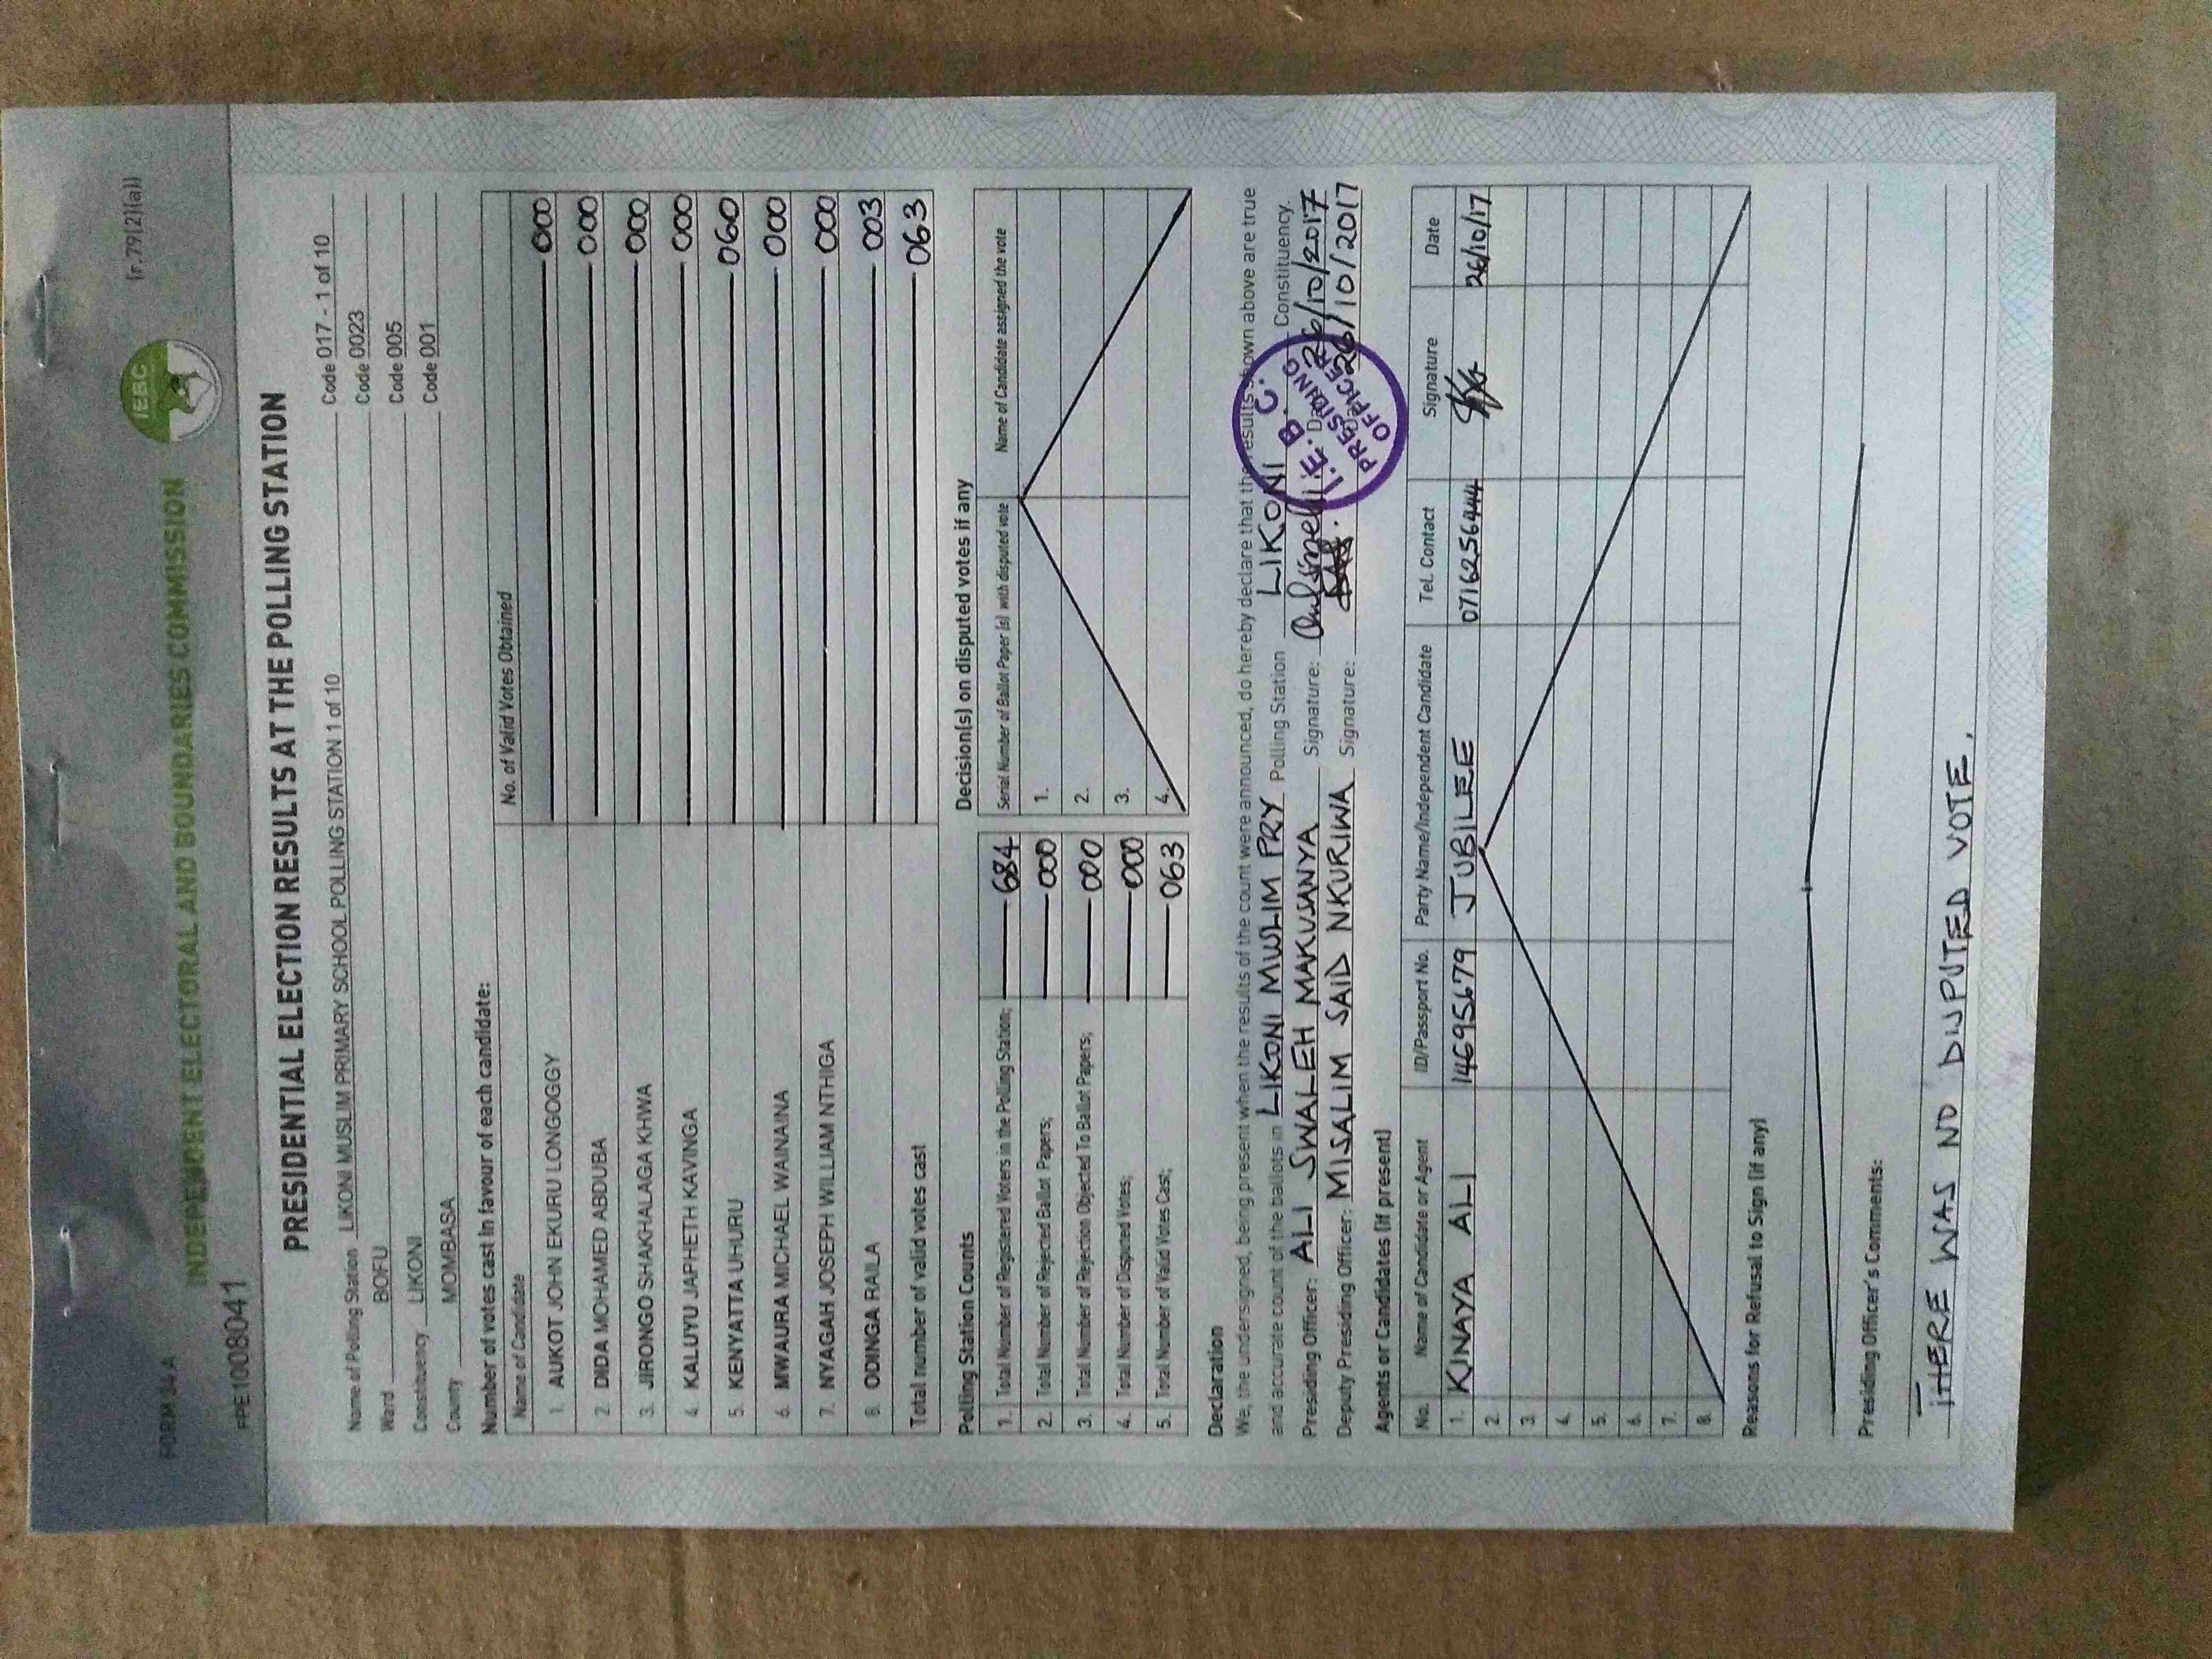 FORM 34A
(r.79(2)(a))
INDEPENDENT ELECTORAL AND BOUNDARIES COMMISSION
IEBC
FPE1008041
PRESIDENTIAL ELECTION RESULTS AT THE POLLING STATION
Name of Polling Station LIKONI MUSLIM PRIMARY SCHOOL POLLING STATION 1 of 10 Code 017 - 1 of 10
Ward BOFU Code 0023
Constituency LIKONI Code 005
County MOMBASA Code 001
Number of votes cast in favour of each candidate:
Name of Candidate No. of Valid Votes Obtained
1. AUKOT JOHN EKURU LONGOGGY 000
2. DIDA MOHAMED ABDUBA 000
3. JIRONGO SHAKHALAGA KHWA 000
4. KALUYU JAPHETH KAVINGA 000
5. KENYATTA UHURU 060
6. MWAURA MICHAEL WAINAINA 000
7. NYAGAH JOSEPH WILLIAM NTHIGA 000
8. ODINGA RAILA 003
Total number of valid votes cast 063
Polling Station Counts
1. Total Number of Registered Voters in the Polling Station; 684
2. Total Number of Rejected Ballot Papers; 000
3. Total Number of Rejection Objected To Ballot Papers; 000
4. Total Number of Disputed Votes; 000
5. Total Number of Valid Votes Cast; 063
Decision(s) on disputed votes if any
Serial Number of Ballot Paper (s) with disputed vote Name of Candidate assigned the vote
1.
2.
3.
4.
Declaration
We, the undersigned, being present when the results of the count were announced, do hereby declare that the results shown above are true
and accurate count of the ballots in LIKONI MUSLIM PRY Polling Station LIKONI Constituency.
Presiding Officer: ALI SWALEH MAKUSANYA Signature: Date 26/10/2017
Deputy Presiding Officer: MISALIM SAID NKURIWA Signature: Date 26/10/2017
I.E.B.C.
PRESIDING
OFFICER
Agents or Candidates (if present)
No. Name of Candidate or Agent ID/Passport No. Party Name/Independent Candidate Tel. Contact Signature Date
1. KINAYA ALI 14695679 JUBILEE 0716256444 26/10/17
2.
3.
4.
5.
6.
7.
8.
Reasons for Refusal to Sign (if any)
Presiding Officer's Comments:
THERE WAS NO DISPUTED VOTE.